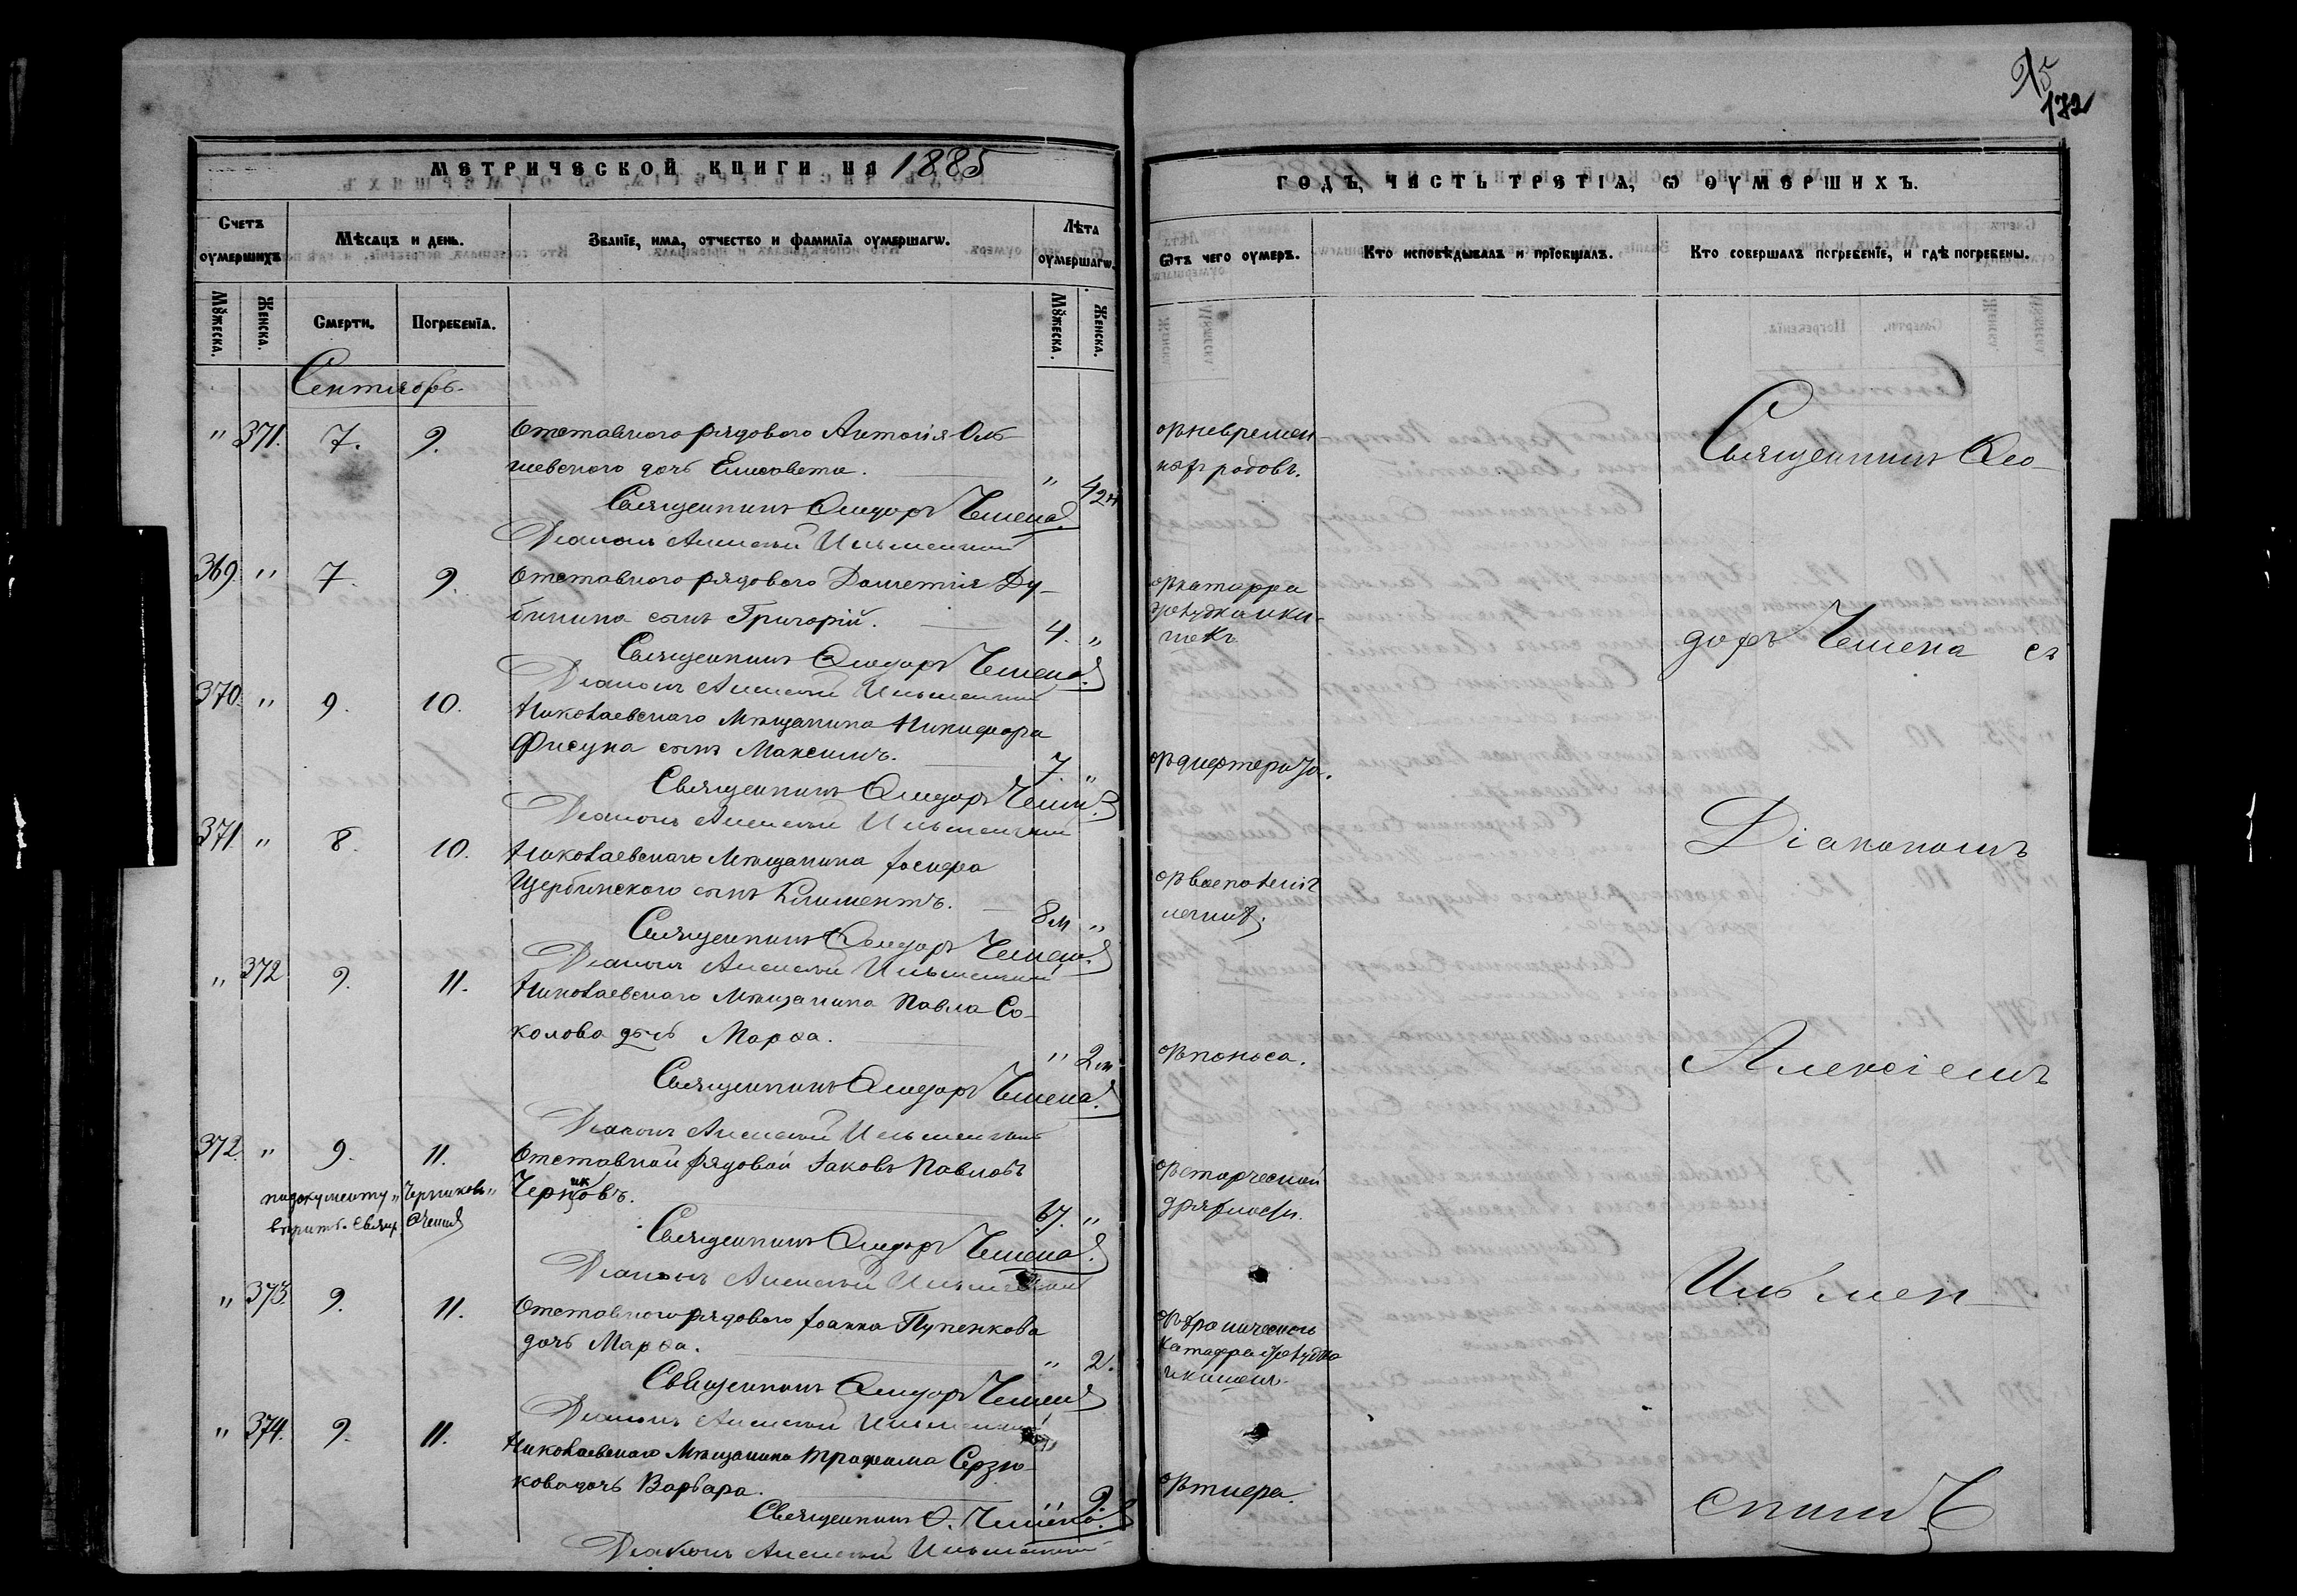 95
172
МЕТРИЧЕСКОЙ КНИГИ НА 1885
ГОДЪ, ЧАСТЬ ТРЕТІѦ, Ѡ ОУМЕРШИХЪ.
Счетъ оумершихъ.
Мѣсѧцъ и день.
Званїе, имѧ, отчество и фамилїѧ оумершагѡ.
Лѣта оумершагѡ.
Ѿ чего оумеръ.
Кто исповѣдывалъ и прїобщалъ.
Кто совершалъ погребенїе, и гдѣ погребены.
Мꙋжеска.
Женска.
Смерти.
Погребенїѧ.
Мꙋжеска.
Женска.
Сентябрь.
" 371. 7. 9. Отставного рядового Антонія Оль-
шевского дочь Елисавета. " 42
Священникъ Ѳеодоръ Чемена
Діаконъ Алексѣй Ильменскій
369 " 7. 9. Отставного рядового Дометія Ду-
бинина сынъ Григорій. 4. "
Священникъ Ѳеодоръ Чемена
Діаконъ Алексѣй Ильменскій
370. " 9. 10. Николаевского Мѣщанина Никифора
Фисуна сынъ Максимъ. 7. "
Священникъ Ѳеодоръ Чемена
Діаконъ Алексѣй Ильменскій
371 " 8. 10. Николаевского Мѣщанина Іосифа
Щербинского сынъ Климентъ. 8 м "
Священникъ Ѳеодоръ Чемена
Діаконъ Алексѣй Ильменскій
" 372 9. 11. Николаевского Мѣщанина Павла Со-
колова дочь Марѳа. " 2 м
Священникъ Ѳеодоръ Чемена
Діаконъ Алексѣй Ильменскій
372. " 9. 11. Отставной рядовой Іаковъ Павловъ
Черновъ. "
ик
по документу "Черниковъ"
вѣрить. Свящ. Ѳ. Чемена
Священникъ Ѳеодоръ Чемена
Діаконъ Алексѣй Ильменскій
" 373. 9. 11. Отставного рядового Іоанна Пупенкова
дочь Марѳа. " 2.
Священникъ Ѳеодоръ Чемена
Діаконъ Алексѣй Ильменскій
" 374. 9. 11. Николаевского Мѣщанина Трофима Серзю-
кова дочь Варвара. 9.
Священникъ Ѳ. Чемена
Діаконъ Алексѣй Ильменскій
отъ невремен-
ныхъ родовъ.
отъ катарра
желудка и ки-
шекъ
отъ дифтерита.
отъ воспаленія
легкихъ.
отъ поноса.
отъ старческой
дряхлости.
отъ хроническаго
катарра желудка
и кишекъ.
отъ тифа.
Священникъ Ѳео-
доръ Чемена съ
Діакономъ
Алексіемъ
Ильмен-
скимъ